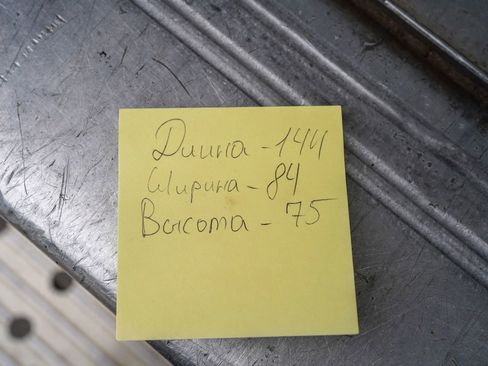 Длина - 144
Ширина - 84
Высота - 75